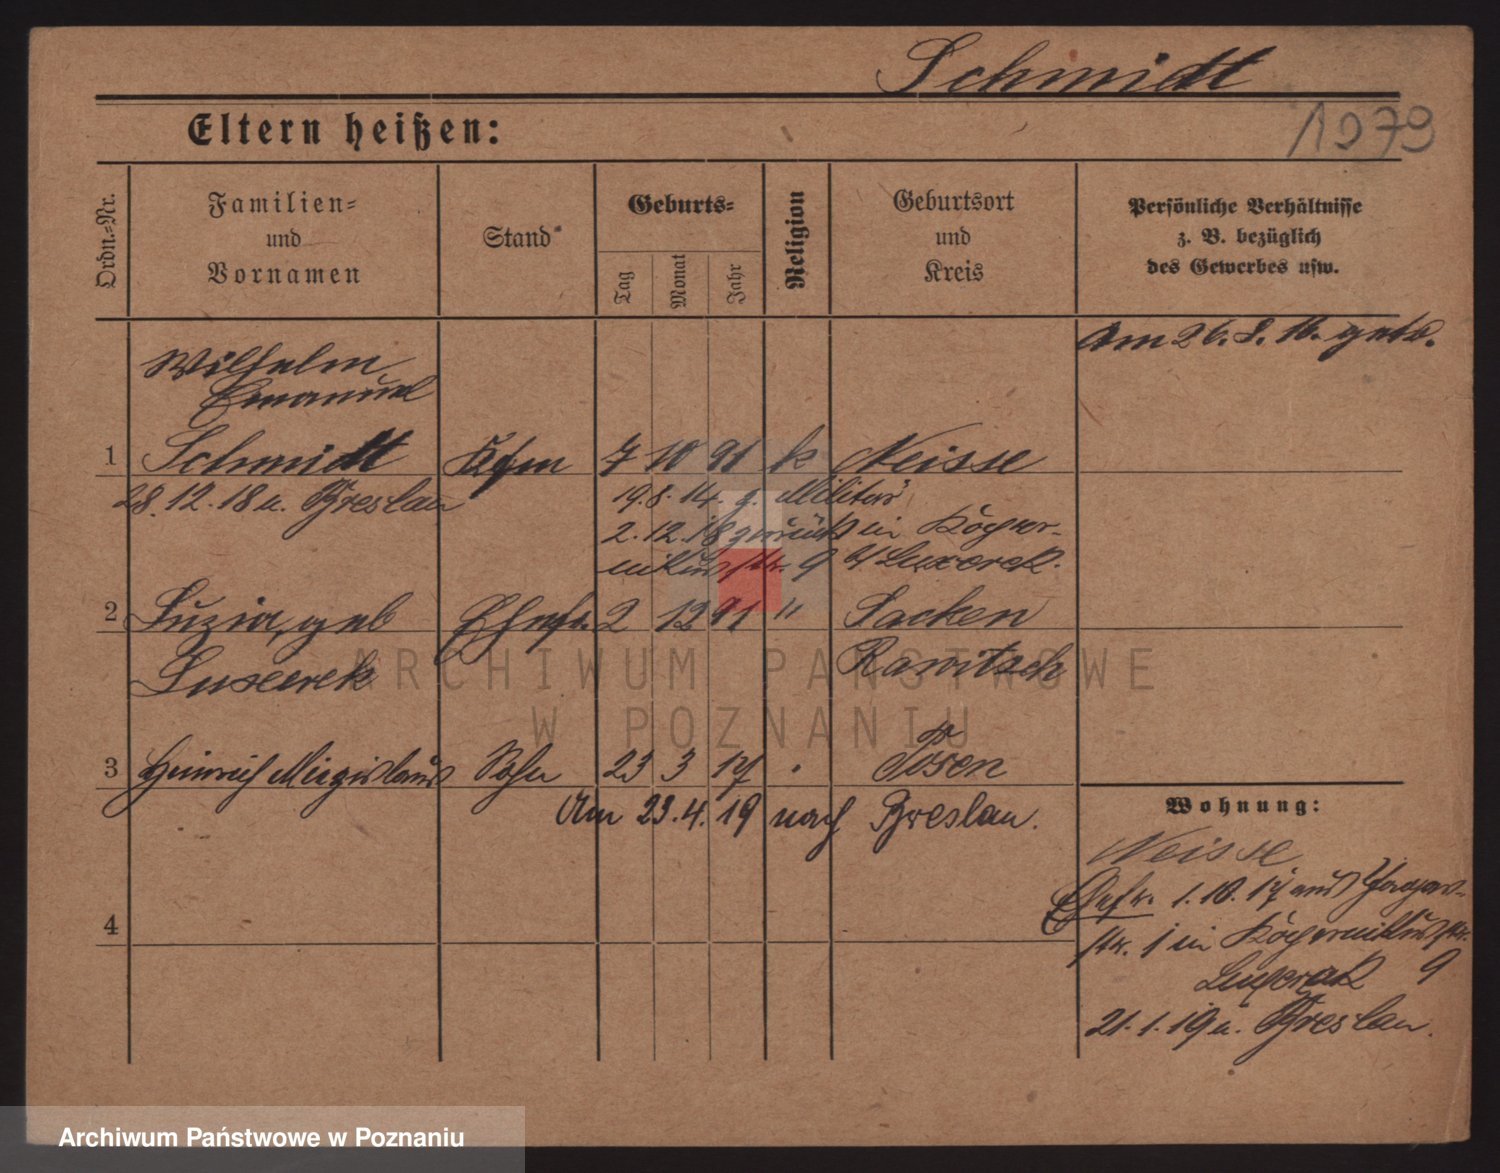 Schmidt
1979
Eltern heißen:
Ordn.-Nr.
Familien-
und
Vornamen
Stand
Geburts-
Tag
Monat
Jahr
Religion
Geburtsort
und
Kreis
Persönliche Verhältnisse
z. B. bezüglich
des Gewerbes usw.
Am 26. 8. 16. getr.
Wilhelm
Emanuel
1 Schmidt Kfm 7 10 91 k Neisse
28.12.18 n. Breslau
19.8.14. z. Militär
2.12.18 zurück in
9 b/ Luxerek.
2 Luzia, geb Ehefr. 2 12 91 " Sacken
Luxcerek Rawitsch
3 Heinrich Miezislaus Sohn 23 3 17 " Posen
Am 23.4.19 nach Breslau.
Wohnung:
Neisse
Ehefr. 1.10.17 aus
str. 1 in
Luxerek 9
21.1.19 n. Breslau.
4
ARCHIWUM PAŃSTWOWE
W POZNANIU
Archiwum Państwowe w Poznaniu